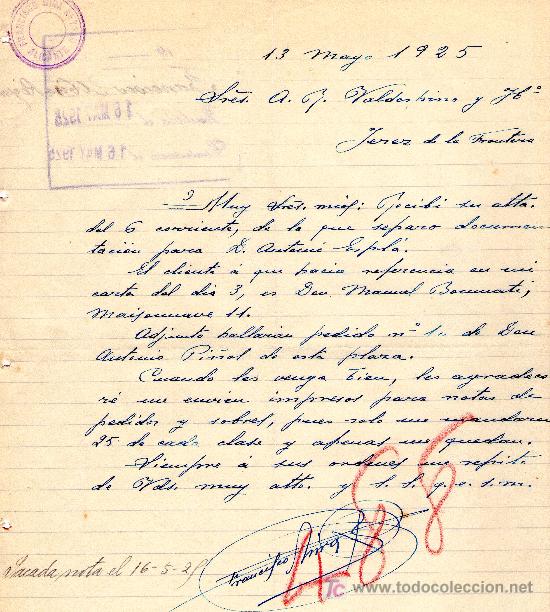 13 Mayo 1925
Sres. A. R. Valdespino y Hº
Jerez de la Frontera
Muy Sres. mios: Recibi su atta.
del 6 corriente, de la que separo documen-
tación para D. Antonio Esplá.
El cliente á que hacia referencia en mi
carta del dia 3, es Don Manuel Bonmati,
Maisonnave 11.
Adjunto hallarán pedido nº 1 de Don
Antonio Piñol de esta plaza.
Cuando les venga bien, les agradece
ré me envien impresos para notas de
pedidos y sobres, pues solo me mandaron
25 de cada clase y apenas me quedan.
Siempre a sus ordenes me repito
de Vds. muy atto. y s. s. q. e. s. m.
Francisco Mira
488
Sacada nota el 16-5-25
16 MAY 1925
16 MAY 1925
todocoleccion.net